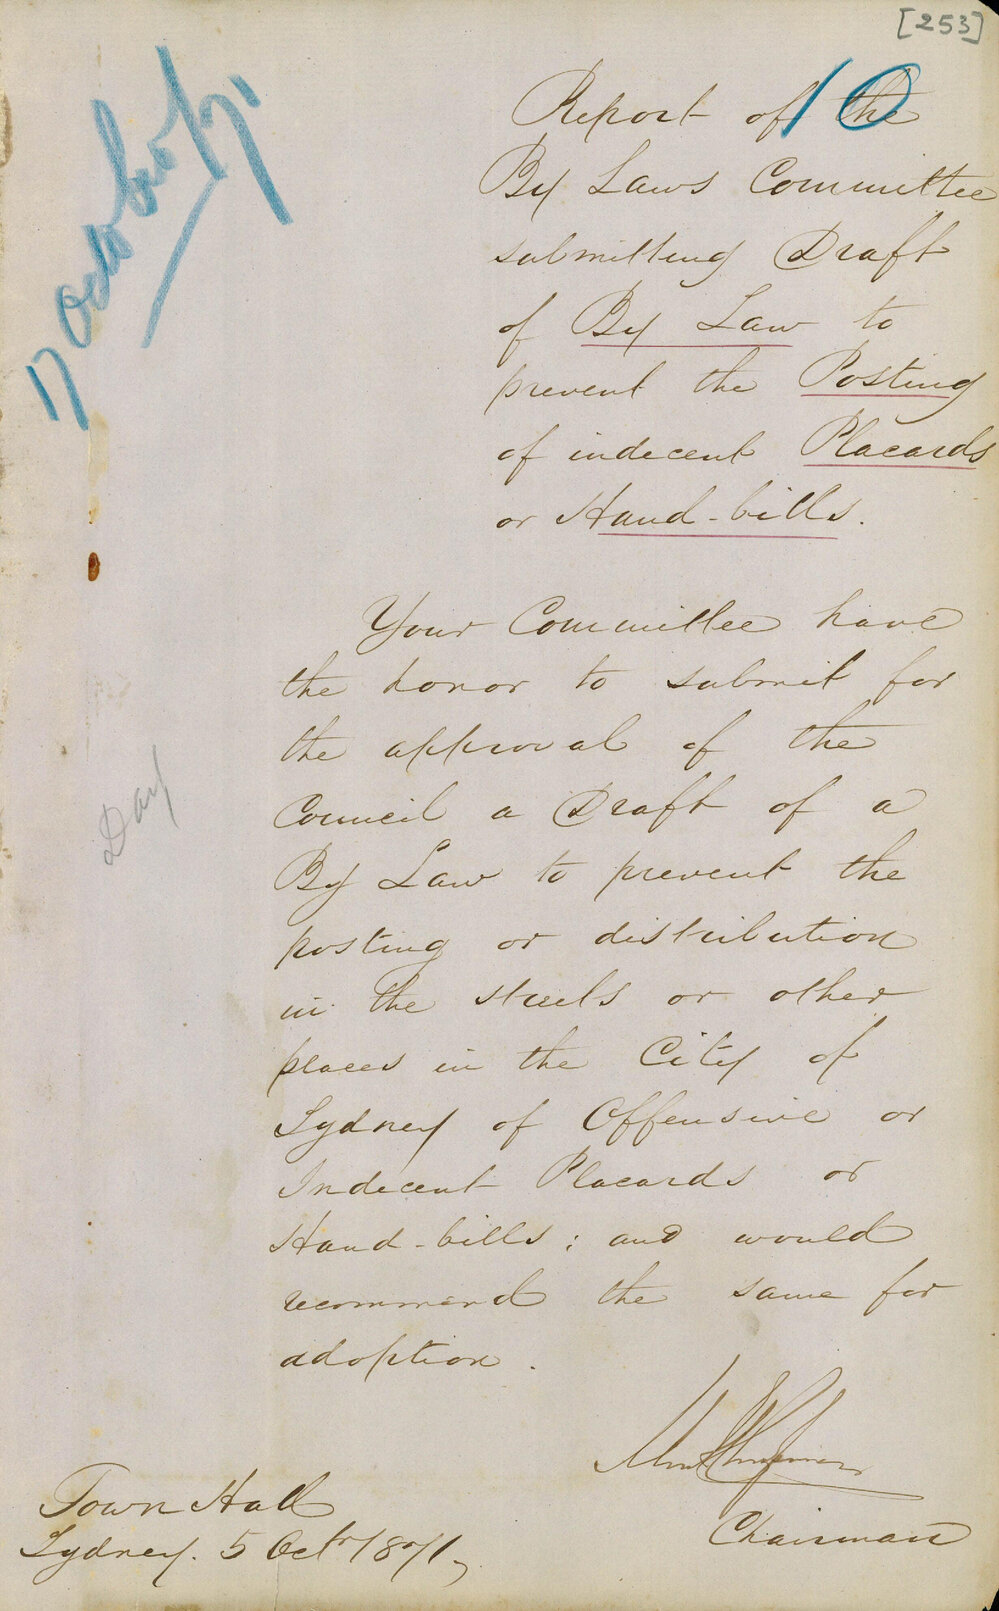 [253]
10
17 October 71
Report of the
By Laws Committee
submitting Draft
of By Law to
prevent the Posting
of indecent Placards
or Hand-bills.
Your Committee have
the honor to submit for
the approval of the
Council a Draft of a
By Law to prevent the
posting or distribution
in the streets or other
places in the City of
Sydney of Offensive or
Indecent Placards or
Hand-bills; and would
recommend the same for
adoption.
Day
Chairman
Town Hall
Sydney. 5 Octr 1871,